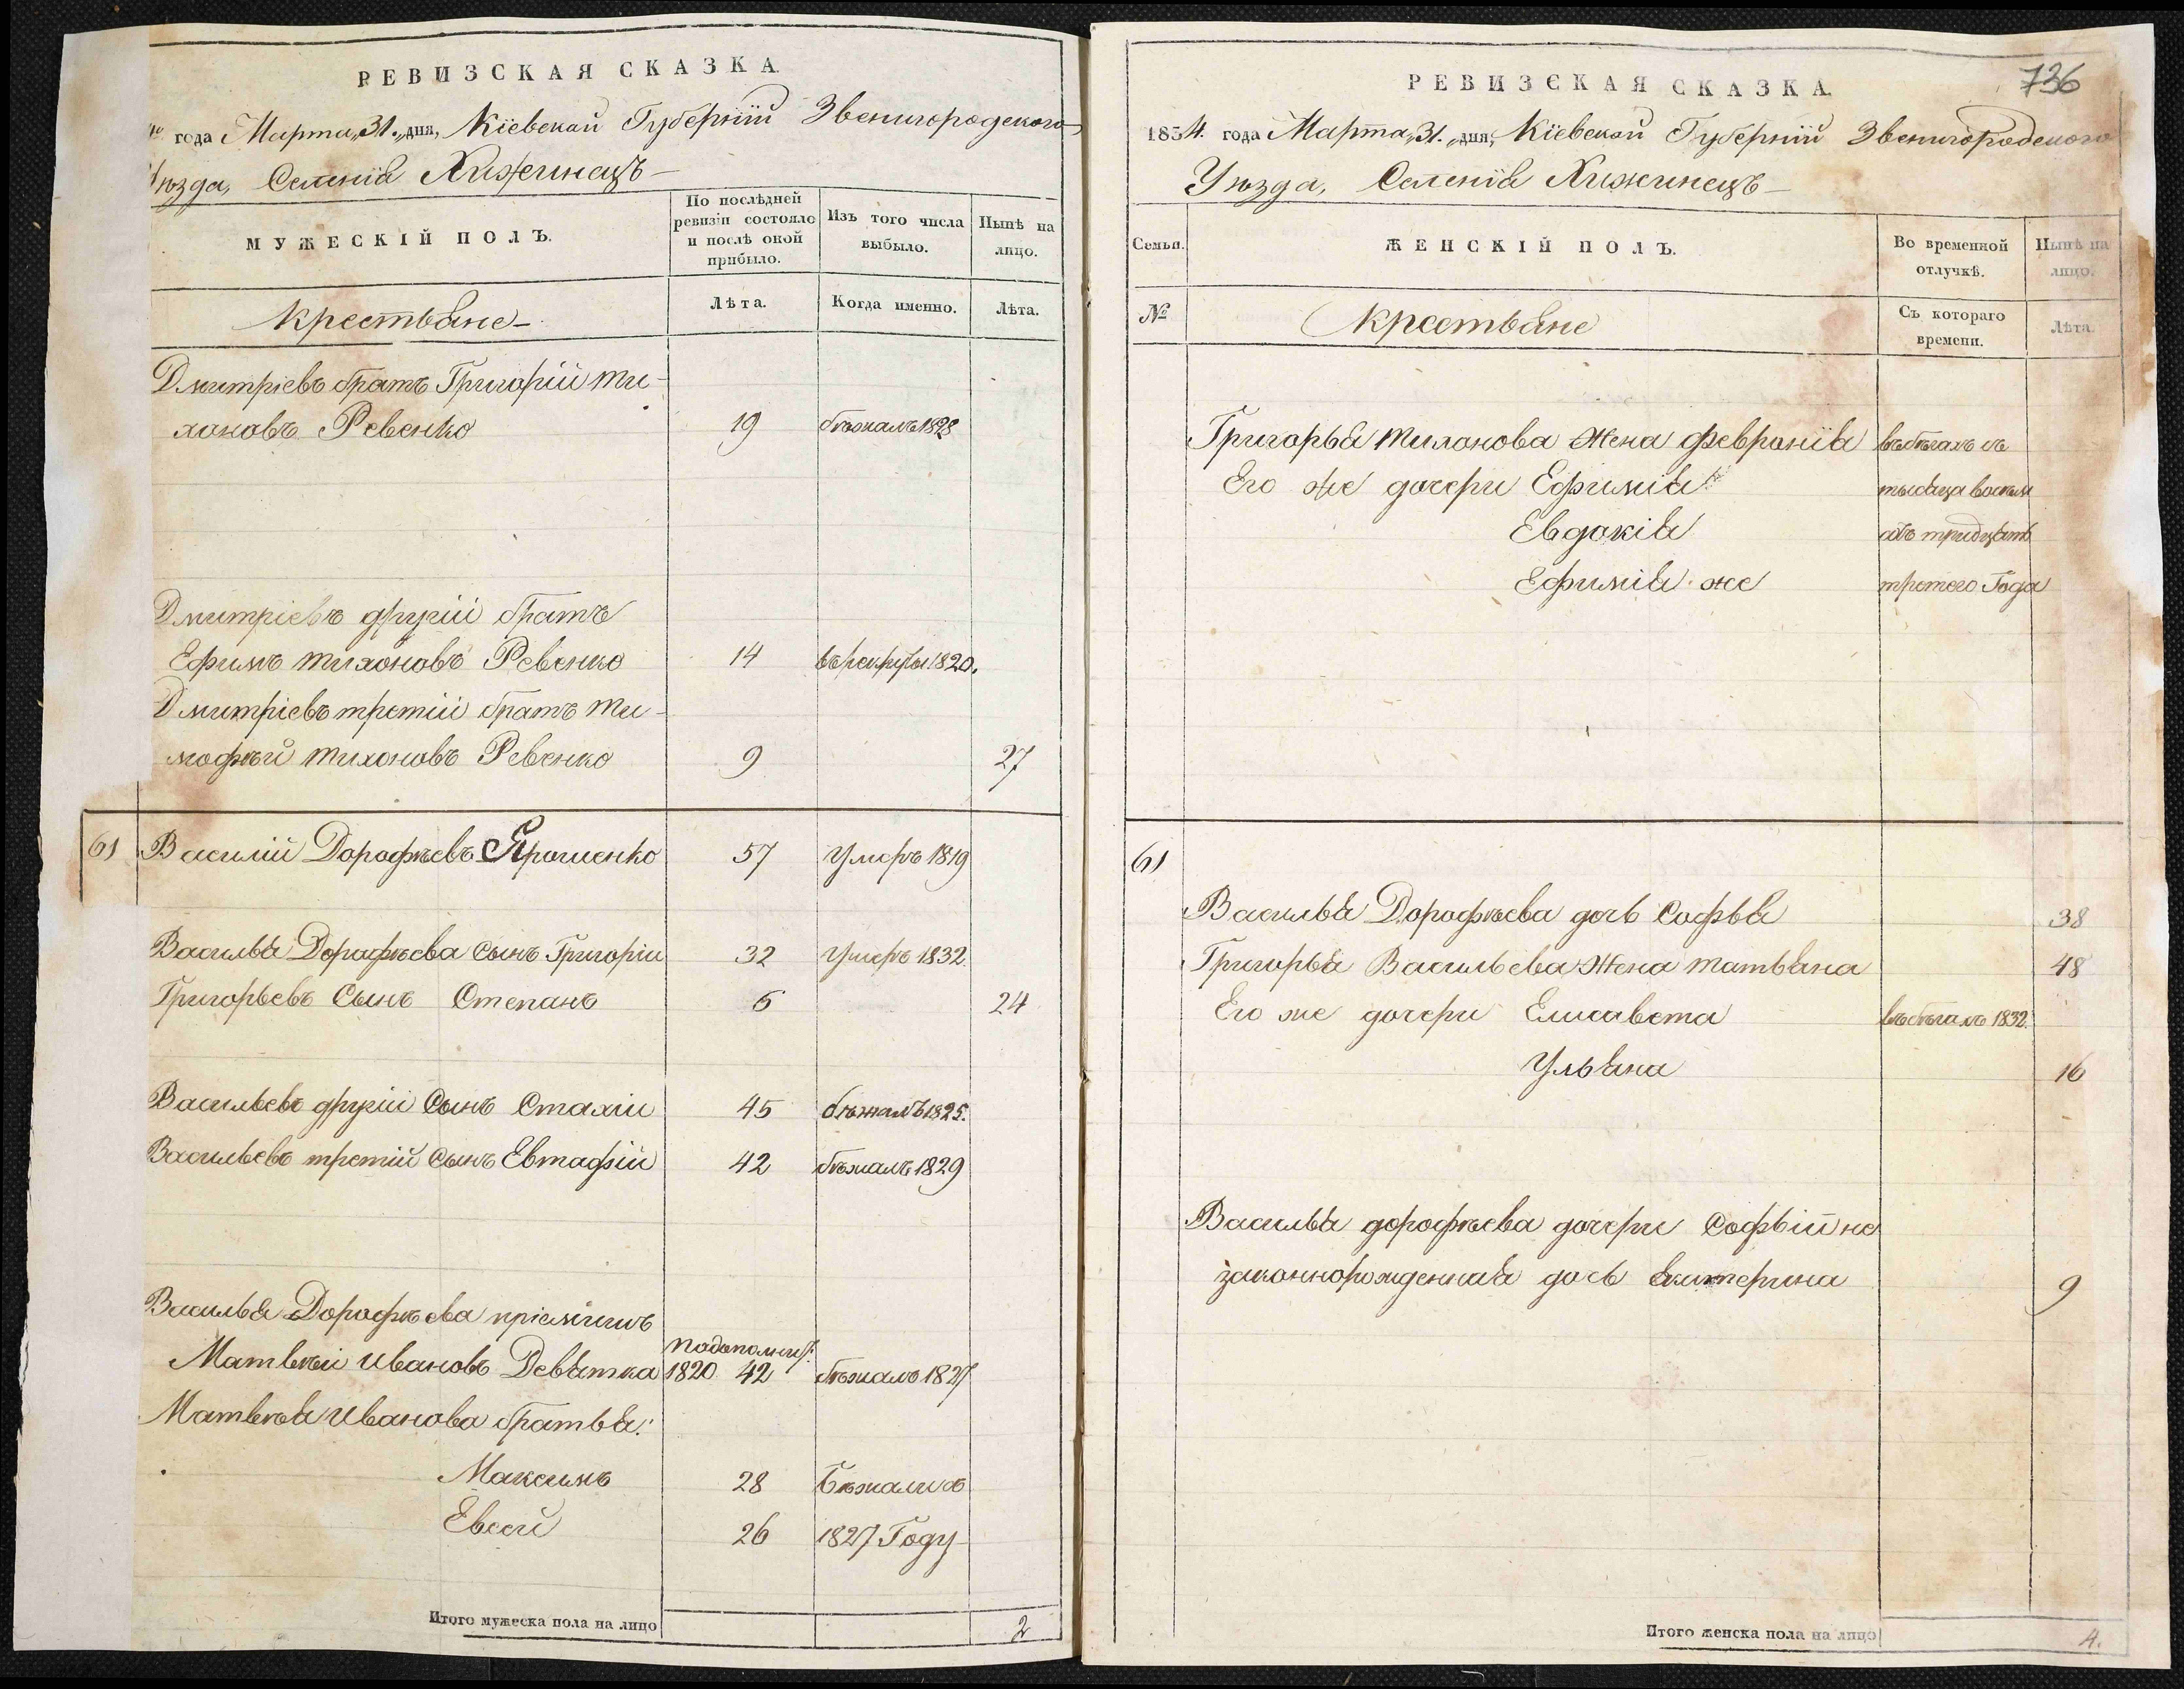 РЕВИЗСКАЯ СКАЗКА.
года Марта „31„ дня, Кіевской Губерніи Звенигородского
Уѣзда, Селенія Хижинецъ
МУЖЕСКІЙ ПОЛЪ.
По послѣдней ревизіи состояло и послѣ оной прибыло.
Изъ того числа выбыло.
Нынѣ на лицо.
Крестьяне
Лѣта.
Когда именно.
Лѣта.
Дмитріевъ братъ Григорій Ти-
хоновъ Ревенко 19 бѣжалъ 1828
Дмитріевъ другій братъ
Ефимъ Тихоновъ Ревенко 14 въ рекруты 1820.
Дмитріевъ третій братъ Ти-
мофѣй Тихоновъ Ревенко 9 27
61 Василій Дорофѣевъ Ярошенко 57 Умеръ 1819
Василья Дорофѣева Сынъ Григорій 32 Умеръ 1832.
Григорьевъ Сынъ Степанъ 6 24
Васильевъ другій Сынъ Стахій 45 бѣжалъ 1825.
Васильевъ третій Сынъ Евтафій 42 бѣжалъ 1829
Василья Дорофѣева пріемишъ
Матвѣй Ивановъ Девятка 1820 42 бѣжалъ 1827
Матвѣя Иванова братья:
Максимъ 28 Бѣжали въ
Евсей 26 1827 Году
Итого мужеска пола на лицо 2
736
РЕВИЗСКАЯ СКАЗКА.
1834. года Марта „31. „дня, Кіевской Губерніи Звенигородского
Уѣзда, Селенія Хижинецъ
Семьи.
ЖЕНСКІЙ ПОЛЪ.
Во временной отлучкѣ.
Нынѣ на лицо.
№
Крестьяне
Съ котораго времени.
Лѣта.
Григорья Тихонова Жена Февронія въ бѣгахъ съ
Его же дочери Ефимія тысяча восем
Евдокія сотъ тридцать
Ефимія же третего Года
61
Василья Дорофѣева дочь Софья 38
Григорья Васильева Жена Татьяна 48
Его же дочери Елисавета въ бѣгахъ 1832.
Ульяна 16
Василья дорофѣева дочери Софьій не
законнорожденная дочь Екатерина 9
Итого женска пола на лицо 4.